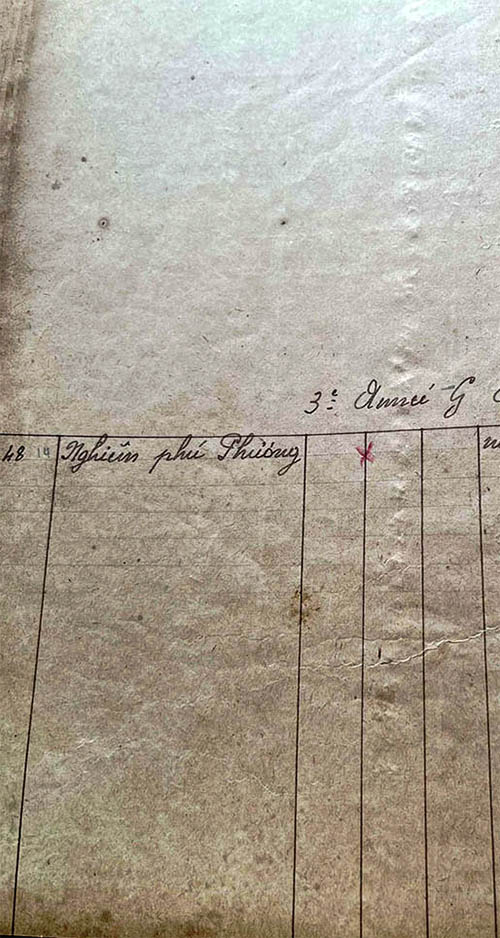 3e Année G
48 14 Nghiêm phú Phương